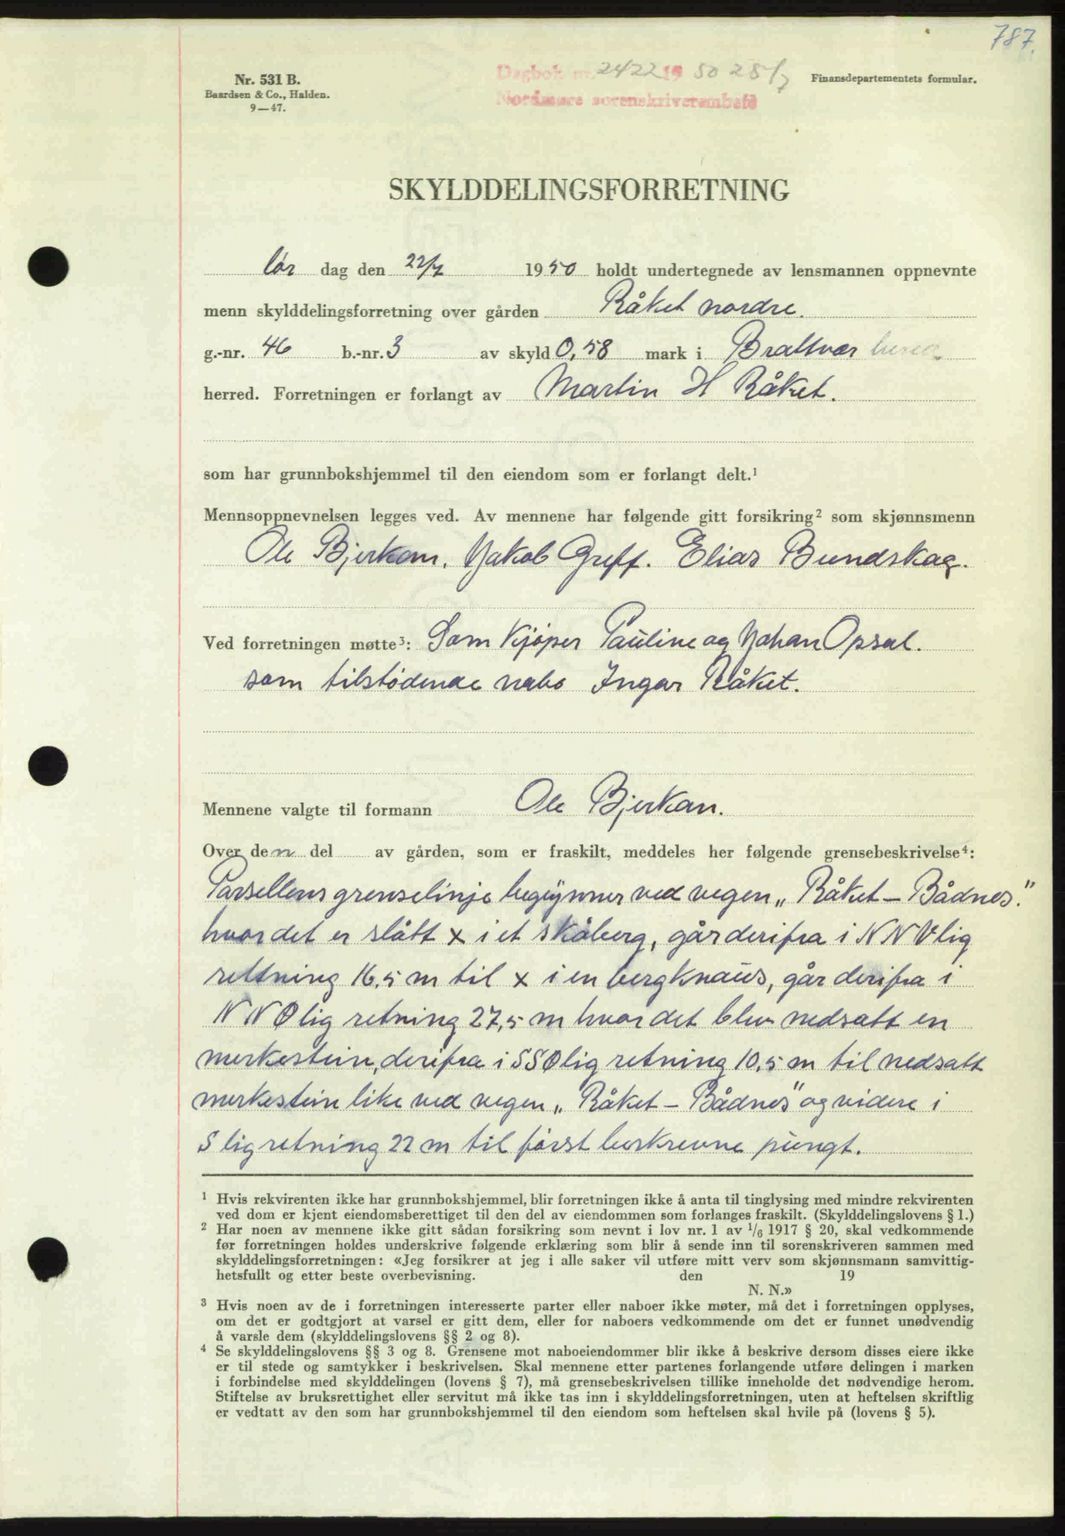 787.
Nr. 531 B.
Baardsen & Co., Halden.
9—47.
Dagbok nr. 2422 1950 28/7
Nordmøre sorenskriverembede
Finansdepartementets formular.
SKYLDDELINGSFORRETNING
Lør dag den 22/7 1950 holdt undertegnede av lensmannen oppnevnte
menn skylddelingsforretning over gården Råket nordre.
g.-nr. 46 b.-nr. 3 av skyld 0,58 mark i Brattvær
herred. Forretningen er forlangt av Martin H Råket.
som har grunnbokshjemmel til den eiendom som er forlangt delt.¹
Mennsoppnevnelsen legges ved. Av mennene har følgende gitt forsikring² som skjønnsmenn
Ole Bjerkan. Jakob Greff. Elias Bundskag.
Ved forretningen møtte³: Som Kjøper Pauline og Johan Opsal.
som tilstødende nabo Ingar Råket.
Mennene valgte til formann Ole Bjerkan.
Over den del av gården, som er fraskilt, meddeles her følgende grensebeskrivelse⁴:
Parsellens grenselinje begynner ved vegen „Råket – Bådnes."
hvor det er slått x i et skåberg, går derifra i NNVlig
rettning 16,5 m til x i en bergknaus, går derifra i
NNØlig retning 27,5 m hvor det blev nedsatt en
merkestein, derifra i SSØlig retning 10,5 m til nedsatt
merkestein like ved vegen „Råket – Bådnes" og videre i
Slig retning 22 m til først beskrevne pungt.
¹ Hvis rekvirenten ikke har grunnbokshjemmel, blir forretningen ikke å anta til tinglysing med mindre rekvirenten
ved dom er kjent eiendomsberettiget til den del av eiendommen som forlanges fraskilt. (Skylddelingslovens § 1.)
² Har noen av mennene ikke gitt sådan forsikring som nevnt i lov nr. 1 av 1/6 1917 § 20, skal vedkommende
før forretningen holdes underskrive følgende erklæring som blir å sende inn til sorenskriveren sammen med
skylddelingsforretningen: «Jeg forsikrer at jeg i alle saker vil utføre mitt verv som skjønnsmann samvittig-
hetsfullt og etter beste overbevisning. den 19
N. N.»
³ Hvis noen av de i forretningen interesserte parter eller naboer ikke møter, må det i forretningen opplyses,
om det er godtgjort at varsel er gitt dem, eller for naboers vedkommende om det er funnet unødvendig
å varsle dem (skylddelingslovens §§ 2 og 8).
⁴ Se skylddelingslovens §§ 3 og 8. Grensene mot naboeiendommer blir ikke å beskrive dersom disses eiere ikke
er til stede og samtykker i beskrivelsen. Skal mennene etter partenes forlangende utføre delingen i marken
i forbindelse med skylddelingen (lovens § 7), må grensebeskrivelsen tillike inneholde det nødvendige herom.
Stiftelse av bruksrettighet eller servitut må ikke tas inn i skylddelingsforretningen, uten at heftelsen skriftlig
er vedtatt av den som har grunnbokshjemmel til den eiendom som heftelsen skal hvile på (lovens § 5).